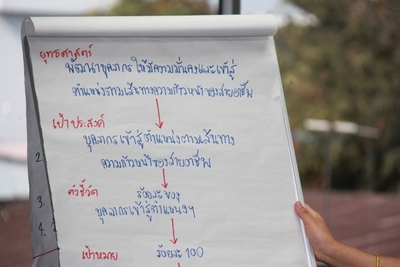 ยุทธศาสตร์
พัฒนาบุคลากรให้มีความมั่นคงและเข้าสู่
ตำแหน่งตามเส้นทางความก้าวหน้าของสายอาชีพ
เป้าประสงค์
บุคลากรเข้าสู่ตำแหน่งตามเส้นทาง
ความก้าวหน้าของสายอาชีพ
2.
ตัวชี้วัด
ร้อยละของ
3.
บุคลากรเข้าสู่ตำแหน่งฯ
4.
เป้าหมาย
ร้อยละ 100